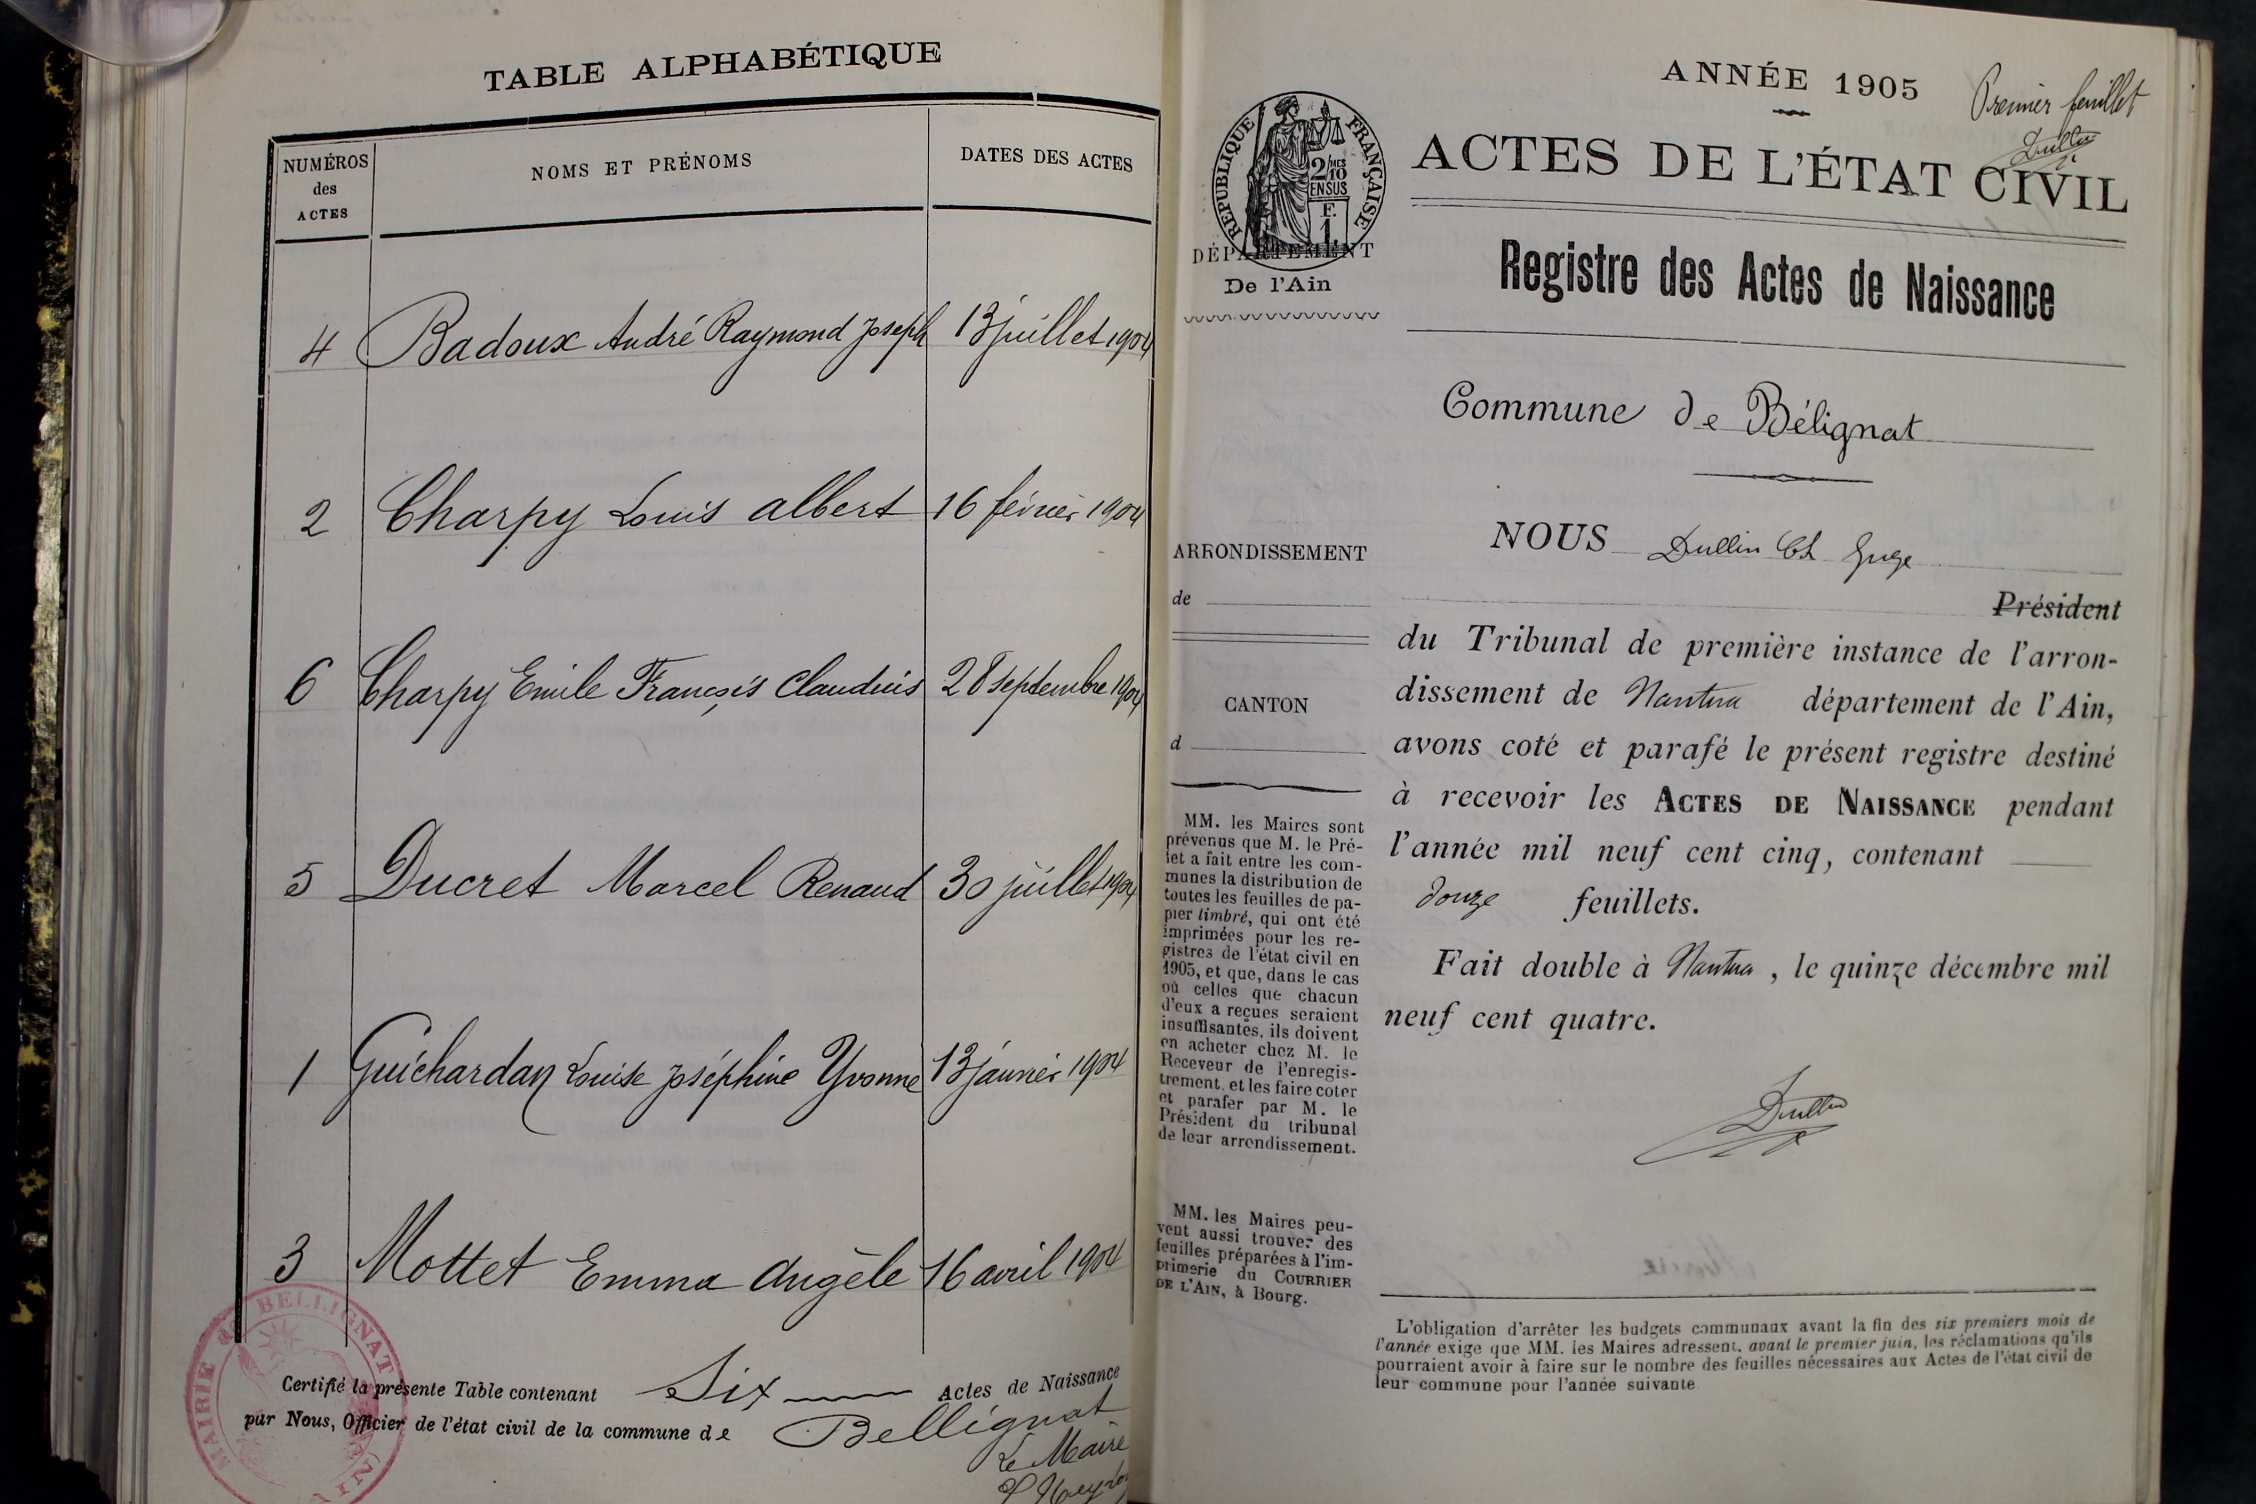 TABLE ALPHABÉTIQUE
NUMÉROS
des
ACTES
NOMS ET PRÉNOMS
DATES DES ACTES
4 Badoux André Raymond Joseph 13 juillet 1904
2 Charpy Louis albert 16 février 1904
6 Charpy Emile François Claudius 28 septembre 1904
5 Ducret Marcel Renaud 30 juillet 1904
1 Guichardan Louise Joséphine Yvonne 13 janvier 1904
3 Mottet Emma Angèle 16 avril 1904
Certifié la présente Table contenant Six Actes de Naissance
par Nous, Officier de l'état civil de la commune de Bellignat
Le Maire
MAIRIE de BELLIGNAT
AIN
ANNÉE 1905
Premier feuillet
Dullin
ACTES DE L'ÉTAT CIVIL
RÉPUBLIQUE FRANÇAISE
2/10 MES
EN SUS
F.
1
DÉPARTEMENT
De l'Ain
Registre des Actes de Naissance
Commune de Bélignat
ARRONDISSEMENT
de
CANTON
d
MM. les Maires sont
prévenus que M. le Pré-
fet a fait entre les com-
munes la distribution de
toutes les feuilles de pa-
pier timbré, qui ont été
imprimées pour les re-
gistres de l'état civil en
1905, et que, dans le cas
où celles que chacun
d'eux a reçues seraient
insuffisantes, ils doivent
en acheter chez M. le
Receveur de l'enregis-
trement, et les faire coter
et parafer par M. le
Président du tribunal
de leur arrondissement.
MM. les Maires peu-
vent aussi trouver des
feuilles préparées à l'im-
primerie du COURRIER
DE L'AIN, à Bourg.
NOUS Dullin Ch Juge
Président
du Tribunal de première instance de l'arron-
dissement de Nantua département de l'Ain,
avons coté et parafé le présent registre destiné
à recevoir les ACTES DE NAISSANCE pendant
l'année mil neuf cent cinq, contenant
douze feuillets.
Fait double à Nantua, le quinze décembre mil
neuf cent quatre.
Dullin
L'obligation d'arrêter les budgets communaux avant la fin des six premiers mois de
l'année exige que MM. les Maires adressent, avant le premier juin, les réclamations qu'ils
pourraient avoir à faire sur le nombre des feuilles nécessaires aux Actes de l'état civil de
leur commune pour l'année suivante